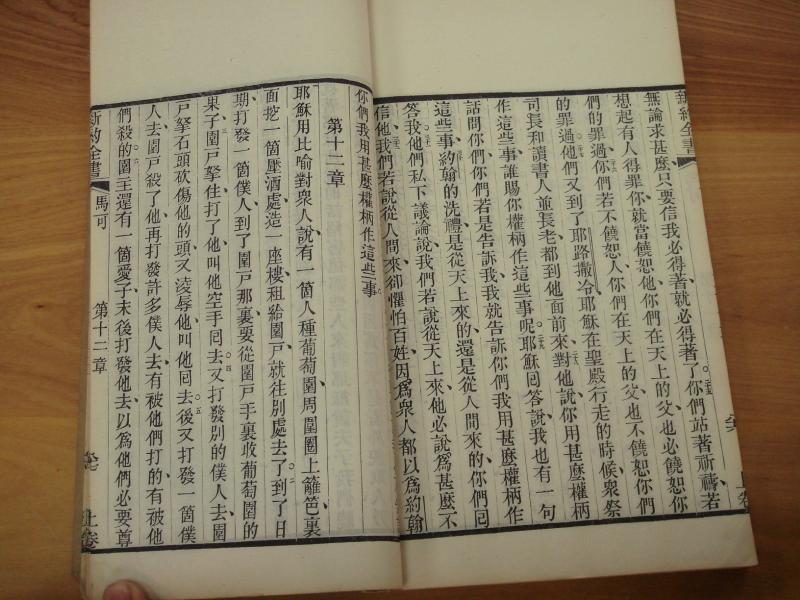 新約全書
無論求甚麼只要信我必得著就必得著了你們站著祈禱若
想起有人得罪你就當饒恕他你們在天上的父也必饒恕你
們的罪過你們若不饒恕人你們在天上的父也不饒恕你們
的罪過他們又到了耶路撒冷耶穌在聖殿行走的時候衆祭
司長和讀書人並長老都到他面前來對他說你用甚麼權柄
作這些事誰賜你權柄作這些事呢耶穌回答說我也有一句
話問你們你們若是告訴我我就告訴你們我用甚麼權柄作
這些事約翰的洗禮是從天上來的還是從人間來的你們回
答我他們私下議論說我們若說從天上來他必說爲甚麼不
信他我們若說從人間來卻懼怕百姓因爲衆人都以爲約翰
你們我用甚麼權柄作這些事
第十二章
耶穌用比喻對衆人說有一箇人種葡萄園周圍圈上籬笆裏
面挖一箇壓酒處造一座樓租給園戸就往別處去了到了日
期打發一箇僕人到了園戸那裏要從園戸手裏收葡萄園的
果子園戸拏住打了他叫他空手回去又打發別的僕人去園
戸拏石頭砍傷他的頭又淩辱他叫他回去後又打發一箇僕
人去園戸殺了他再打發許多僕人去有被他們打的有被他
們殺的園主還有一箇愛子末後打發他去以爲他們必要尊
新約全書 馬可 第十二章 上卷